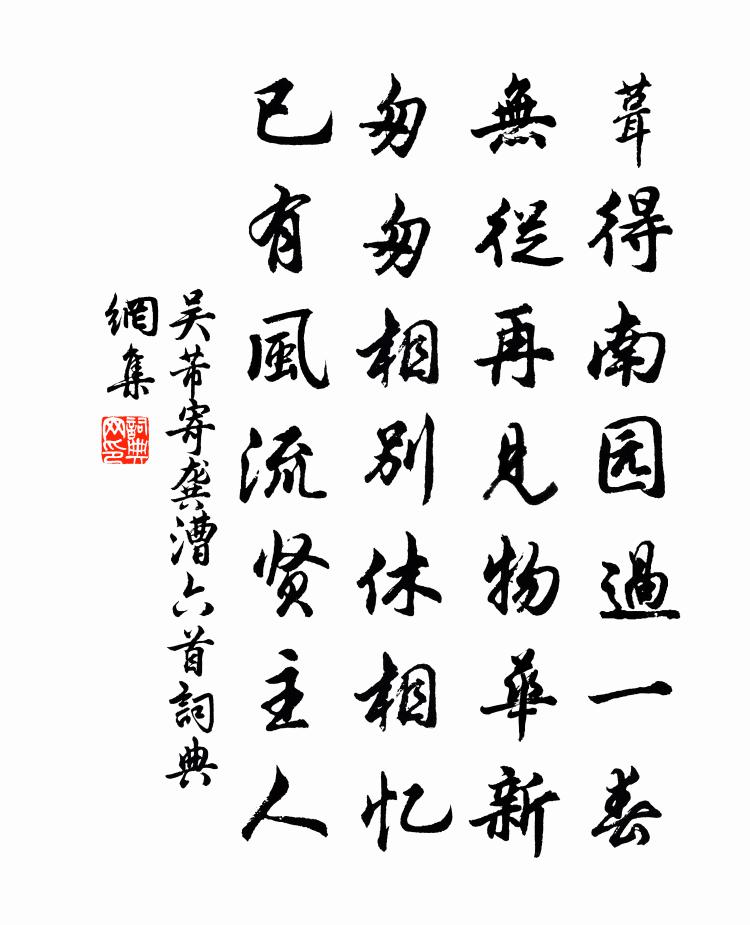 葺得南园過一春
無從再見物華新
匆匆相别休相忆
已有風流贤主人
吴芾寄龚漕六首詞典
網集
詞典
网印